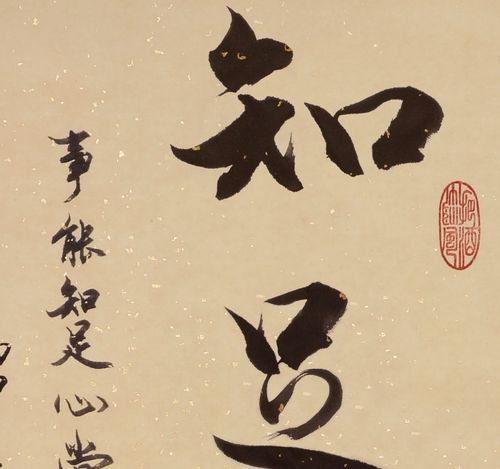 知足
事能知足心常